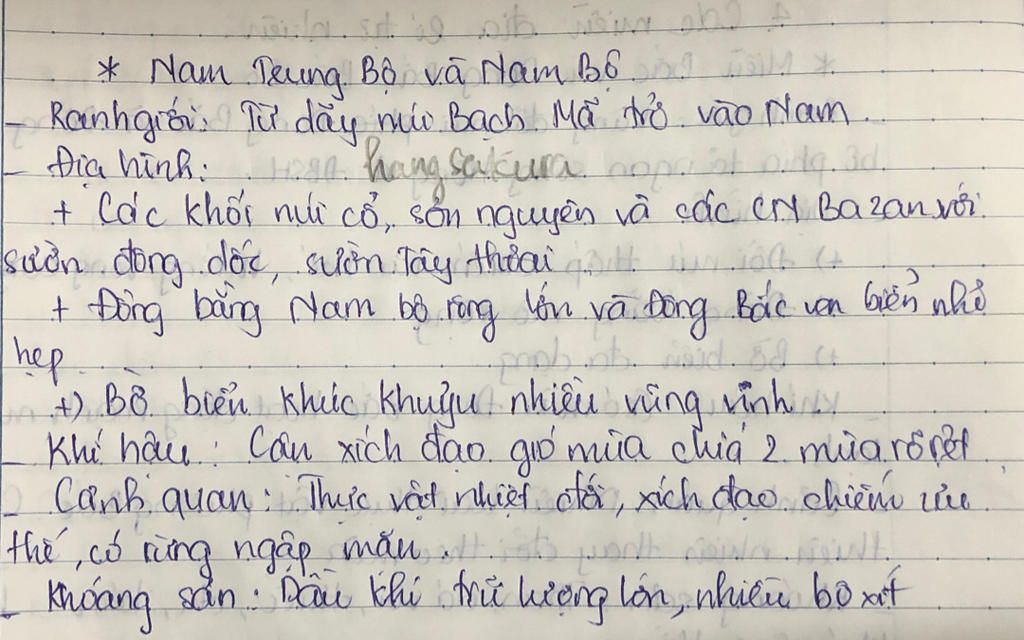 * Nam Trung Bộ và Nam Bộ
- Ranh giới: Từ dãy núi Bạch Mã trở vào Nam.
- Địa hình:
hangsakura
+ Các khối núi cổ, sơn nguyên và các CN Bazan với
sườn đông dốc, sườn Tây thoải
+ Đồng bằng Nam bộ rộng lớn và Đông Bắc ven biển nhỏ
hẹp
+) Bờ biển khúc khuỷu nhiều vũng vịnh
- Khí hậu: Cận xích đạo gió mùa chia 2 mùa rõ rệt
- Cảnh quan: Thực vật nhiệt đới, xích đạo chiếm ưu
thế, có rừng ngập mặn.
- Khoáng sản: Dầu khí trữ lượng lớn, nhiều bô xít